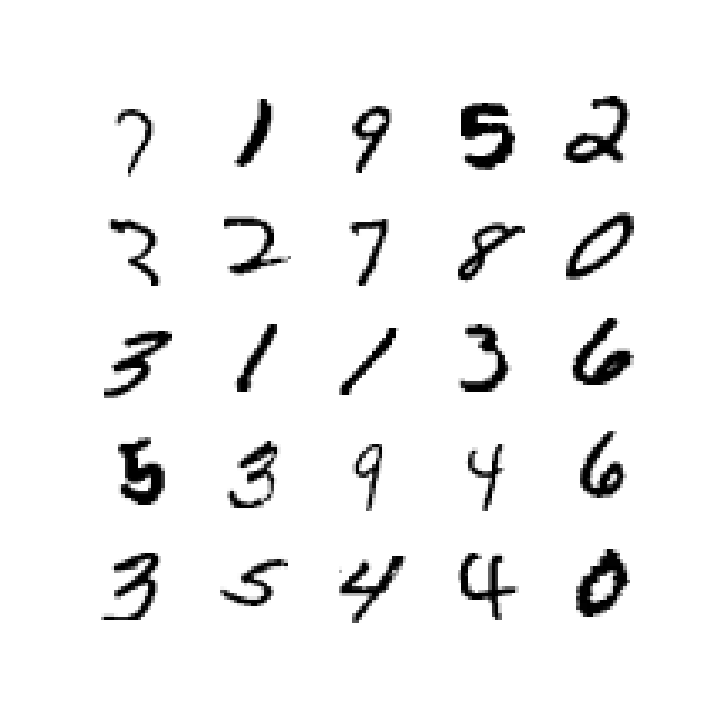 7 1 9 5 2
3 2 7 8 0
3 1 1 3 6
5 3 9 4 6
3 5 4 4 0